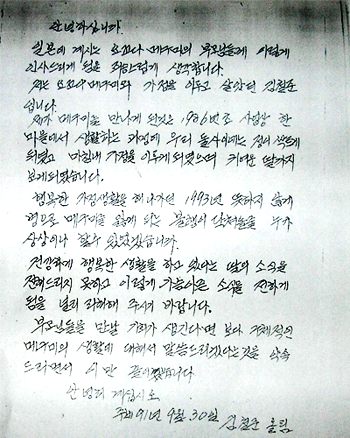 안녕하십니까.
일본에 계시는 요꼬다 메구미의 부모님들께 이렇게
인사드리게 됨을 죄송스럽게 생각합니다.
저는 요꼬다 메구미와 가정을 이루고 살았던 김철준
입니다.
제가 메구미를 만나게 된것은 1986년으로 사업상 한
마을에서 생활하는 과정에 우리 둘사이에는 정이 쏘프게
되였고 마침내 가정을 이루게 되였으며 귀여운 딸까지
보게되였습니다.
행복한 가정생활을 해나가던 1993년 뜻하지 않게
병으로 메구미를 잃게 되는 불행이 닥쳐올줄 누가
상상이나 할수 있었겠습니까.
건강하게 행복한 생활을 하고 있다는 딸의 소식을
전해드리지 못하고 이렇게 가슴아픈 소식을 전하게
됨을 널리 리해해 주시기 바랍니다.
부모님들을 만날 기회가 생긴다면 보다 구체적인
메구미의 생활에 대해서 말씀드리겠다는것을 약속
드리면서 이만 끝이겠습니다
안녕히 계십시오.
주체91년 9월 30일 김철준 올림